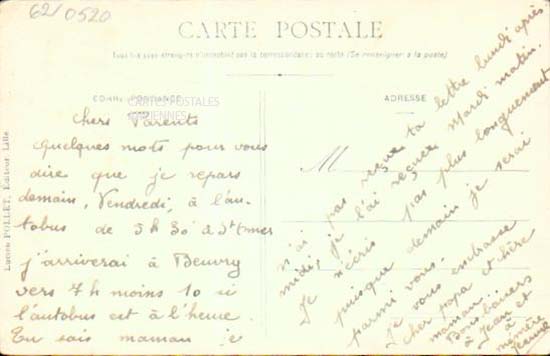 62/0520
CARTE POSTALE
Tous les pays étrangers n'acceptent pas la correspondance au recto (Se renseigner à la poste)
CORRESPONDANCE
CARTES POSTALES
ANCIENNES
ADRESSE
M
Lucien POLLET, Éditeur, Lille
Chers Parents
Quelques mots pour vous
dire que je repars
demain, Vendredi, à l'au-
tobus de 5h 30 à St Omer
j'arriverai à Beuvry
vers 7h moins 10 si
l'autobus est à l'heure.
Tu sais maman je
n'ai pas reçue ta lettre lundi après
midi, je l'ai reçue Mardi matin.
Je n'écris pas plus longuement
puisque demain je serai
parmi vous.
Je vous embrasse
cher papa et chère
maman.
Bons baisers
à Jean et
à
mémère
Jeanne